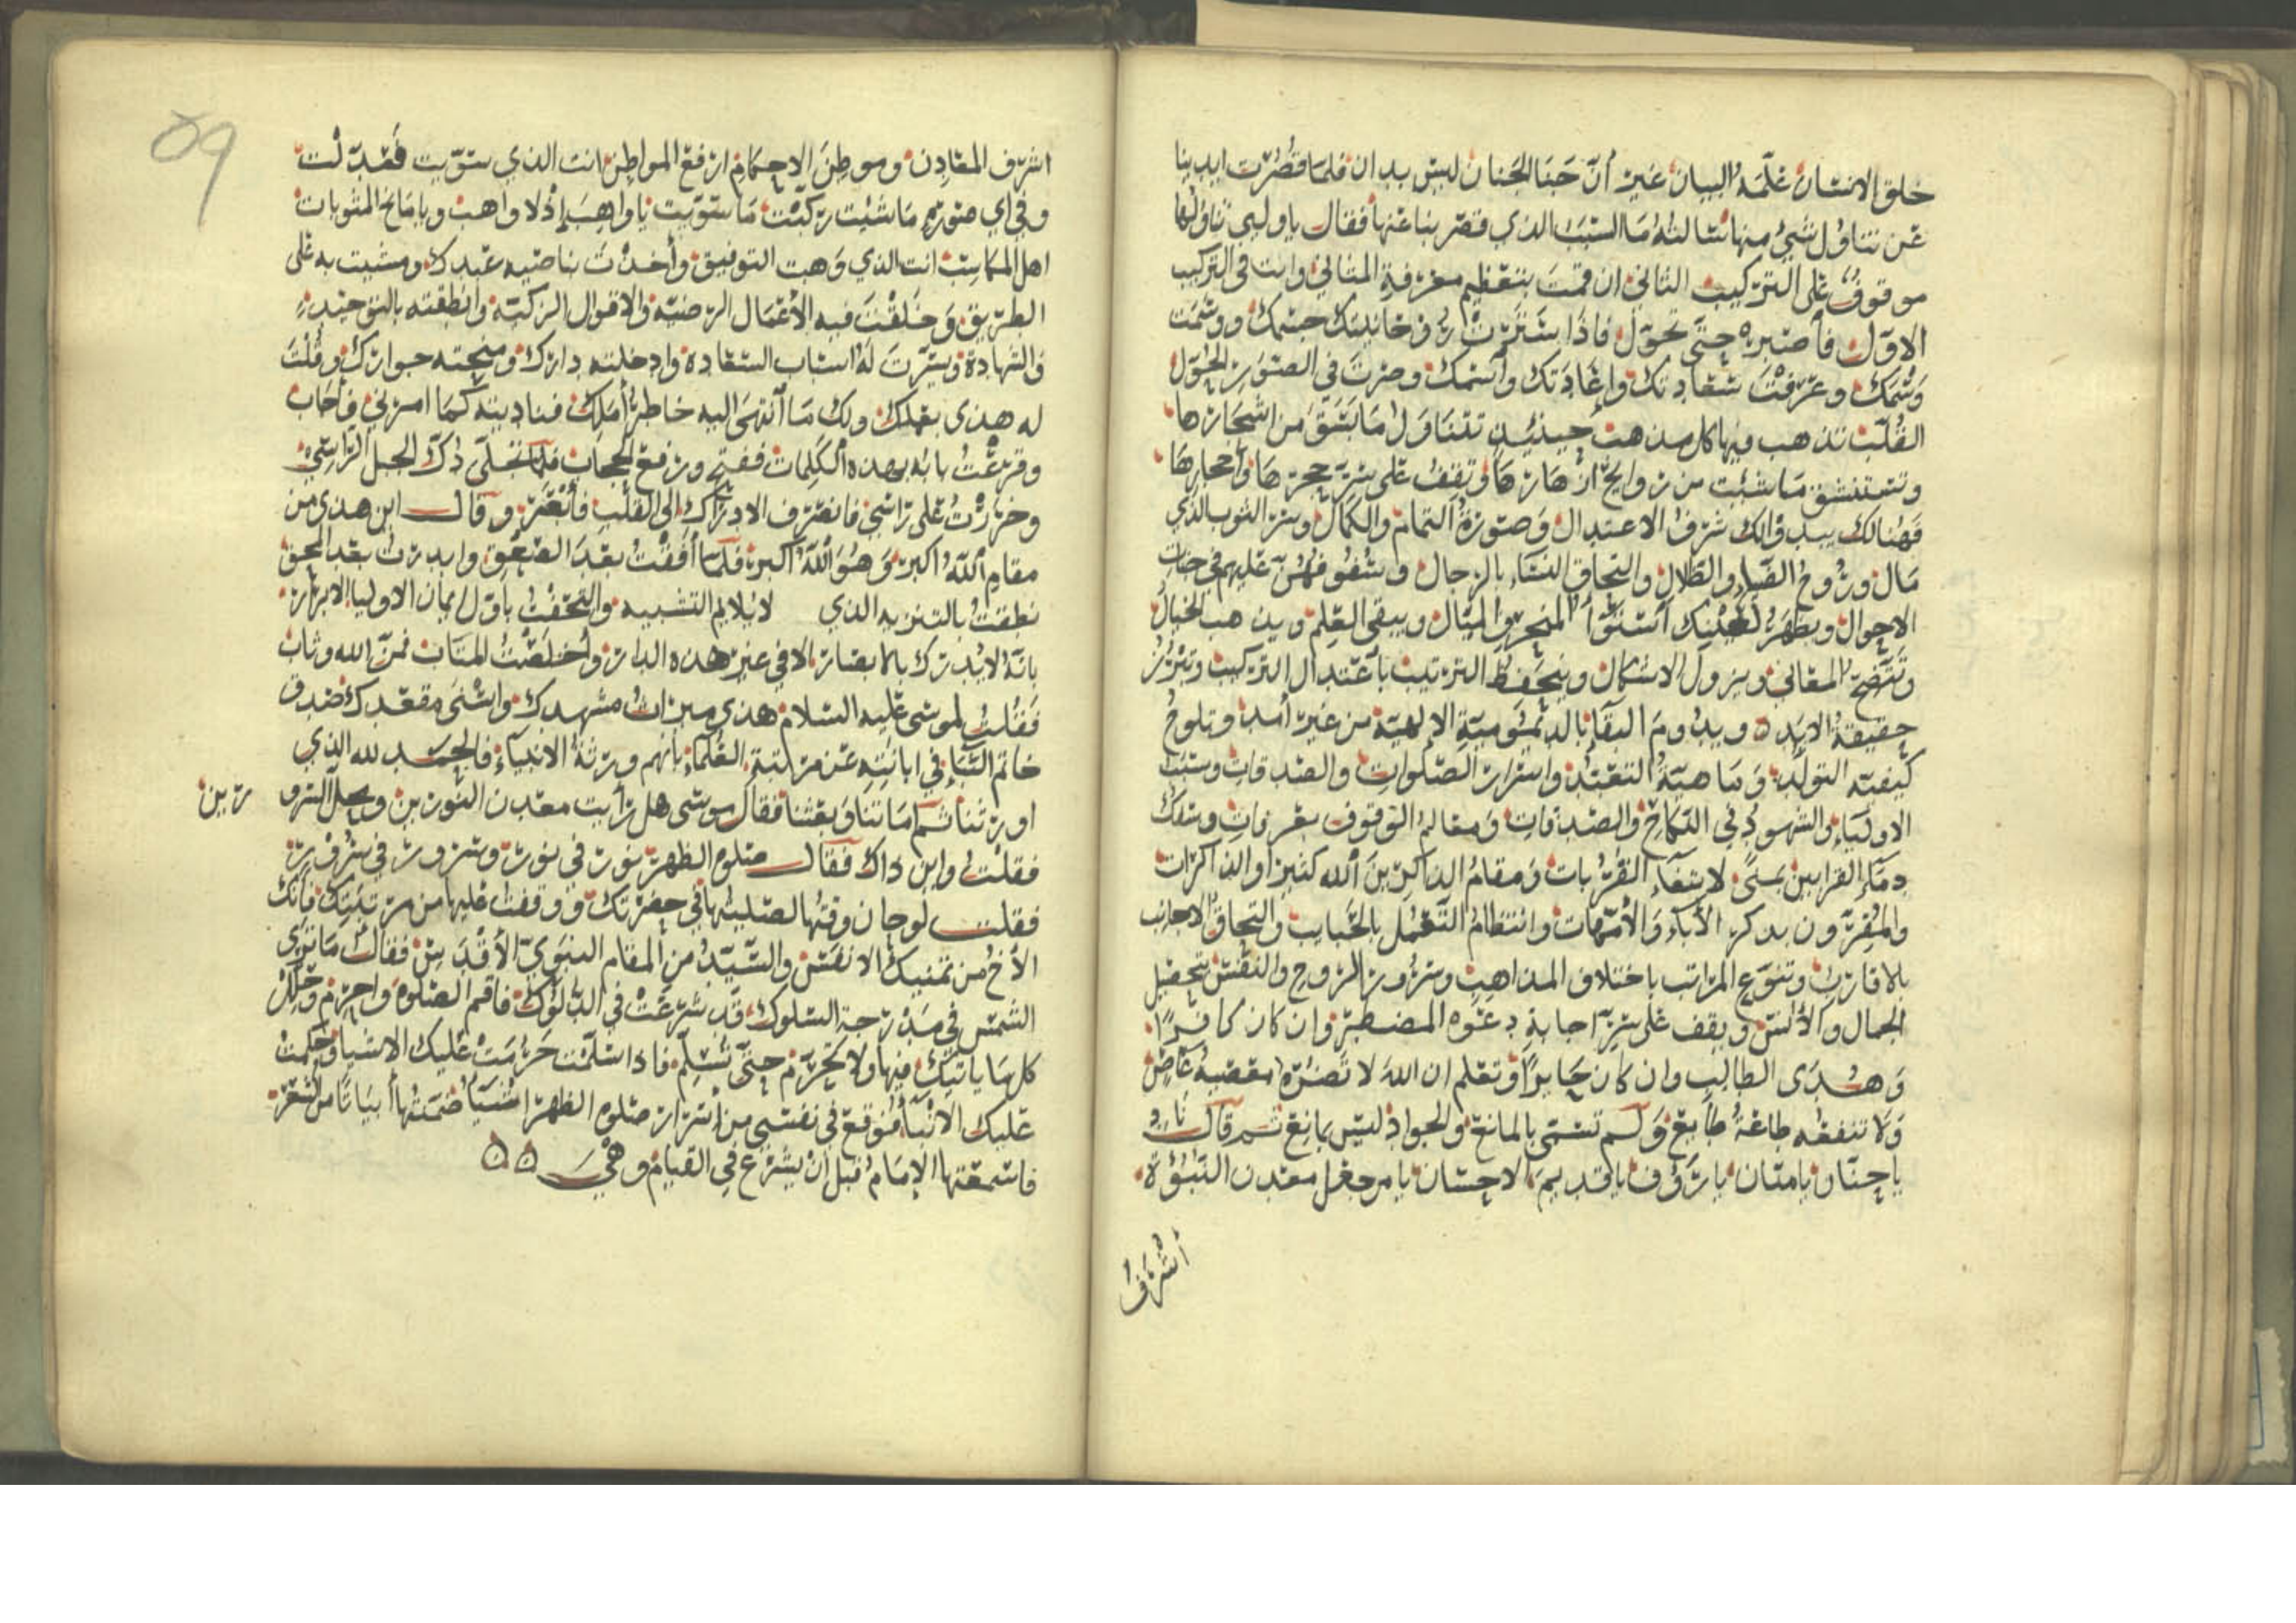 خلق الانسان علّمه البيان غير أنّ جنا الجنان ليس بدان فلما قصُرت ايدينا
عن تناوُل شيءٍ منها سالناه ما السبب الذي قصّر بنا عنها فقال يا وليي تناوُلها
موقوفٌ على التركيب الثاني ان قمتَ بتعظيم معرفة المثاني وانت في التركيب
الاوّل فاصبره حتى تحوّل فاذا
وسْمك وعرفتَ سعادتك واعادتك واسمك وصرتَ في الصّوَر الحُوّل
القُلّب تذهب فيها كل مذهب حينئذٍ تتناول ما بَسَقَ من اشجارها
وتستنشق ما شئت من روايح ازهارها وتقف على سرّ حجرها واحجارها
فهُنالك يبدو لك شرفُ الاعتدال وصورةُ التمام والكمال وسر الثوب الذي
مال وروح الضياء والظلال والتحاق النساء بالرجال وشفوفهنّ عليهم في جنات
الاحوال ويظهرُ لعينيك استواُ المنحرف والميّال ويبقى العِلم ويذهب الخيالُ
وتتضح المعاني ويزول الاشكال وينحفظ الترتيب باعتدال التركيب وتبرُز
حقيقةُ الابَد ويدُومَ البقآ بالديمُوميّةِ الالهيّة من غير أمدٍ وتلوحُ
كيفيّه التولّد وماهيّةُ التعبّد واسرار الصّلوات والصدقات وسبَبُ
الاولياءِ والشهودِ في النكاح والصدقات ومعالم الوقوف بعرفاتٍ وسفك
دمآءِ القرابين بمنًى لابتغآء القُرُبات ومقام الذاكرينَ الله كثيرًا والذاكرات
والمُقِرّون بذكر الآباءِ والأمّهات وانتظامُ الشمل بالحبايب والتحاقُ الاجانب
بالاقارب وتنوّع المراتب باختلاف المذاهب وسرُور الروح والنفس بتحصيل
الجمال والأنس ويقف على سرّ اجابةِ دعوه المضطر وان كان كافرًا
وهُدَى الطالب وان كان جايرًا وتعلم ان الله لا تضرّه معصيةُ عاصٍ
ولا تنفعه طاعةُ طايع ولم تسمّى بالمانع والجواد ليس بمانع ثم قال
يا حنّان يا منّان يا رؤوف يا قديمَ الاحسان يا من جعل معدن النبُوّة
أشرَفُ
09
اشرف المعادن وموطنَ الاحكام ارفع المواطن انت الذي سوّيت فعدّلت
وفي اي صورةٍ ما شئت ركّبت ما سوّيت يا واهبَ إذ لا واهب ويا مانح المثوبات
اهل المكاسب انت الذي وهبت التوفيق وأخذت بناصيه عبدك ومشيت به على
الطريق وخلقت فيه الأعمال الرضيّه والاقوال الزكيّة وانطقته بالتوحيد
والشهادة ويسّرت له اسباب السعاده وادخلته دارك ومنحته جوارك وقُلتَ
له هذى بعملك ولك ما انتهى اليه خاطر أملك فناديته كما امرني فأجاب
وقرعتُ بابه بهذه الكلمات ففتح ورفع الحجاب فلما تجلّى دُكّ الجبل الراسي
وخررتُ على راسي فانصرف الادراك الى القلب فأنعمَر وقال اين هذي من
مقام الله اكبر وهُوَ الله اكبر فلمّا افقتُ بعدَ الصّعق وابدرت بعد المحق
نطقت بالتنزيه الذي لا يلايم التشبيه والتحقتُ باوّل ايمان الاوليا الابرار
بانه لا يُدرك بالابصار الا في غير هذه الدار وأخلصتُ المتاب فمنّ الله وثاب
فقُلت لموسى عليه السلام هذي ميراث مشهدك واسْنَى مقعدك صدق
خاتم النباءِ في ابانتِهِ عن مرتبةِ العُلماءِ بانهم ورثةُ الانبياء فالحمد لله الذي
اورثنا ثم امتنا وبعثنا فقال موسى هل رايت معدن النورين ومحلّ السرو
رين
فقلتُ واين ذاك فقال صلوه الظهر نورٌ في نورٍ وسرورٌ في سرورٍ
فقلت لو حان وقتُها لصليتُها في حضرتك ووقفتُ عليها من مرتبتك فأنك
الأخُ من تمنيك الانفَس والسّيّدُ من المقام النبويّ الأقدس فقال ما ترى
الشمس في مدرجة السلوك قد شرعت في الدلوك فاقم الصلوه واحرم وحلّل
كل ما ياتيك فيها ولا تحرّم حتى تُسلّم فاذا سلّمت حَرُمت عليك الاشيا وحكمت
عليك الانبآ فوقع في نفسي من اسرار صلوه الظهر اشيآ ضمنتُها ابياتا من الشعر
فاسمعتها الإمام قبل أن يشرع في القيام وهيَ